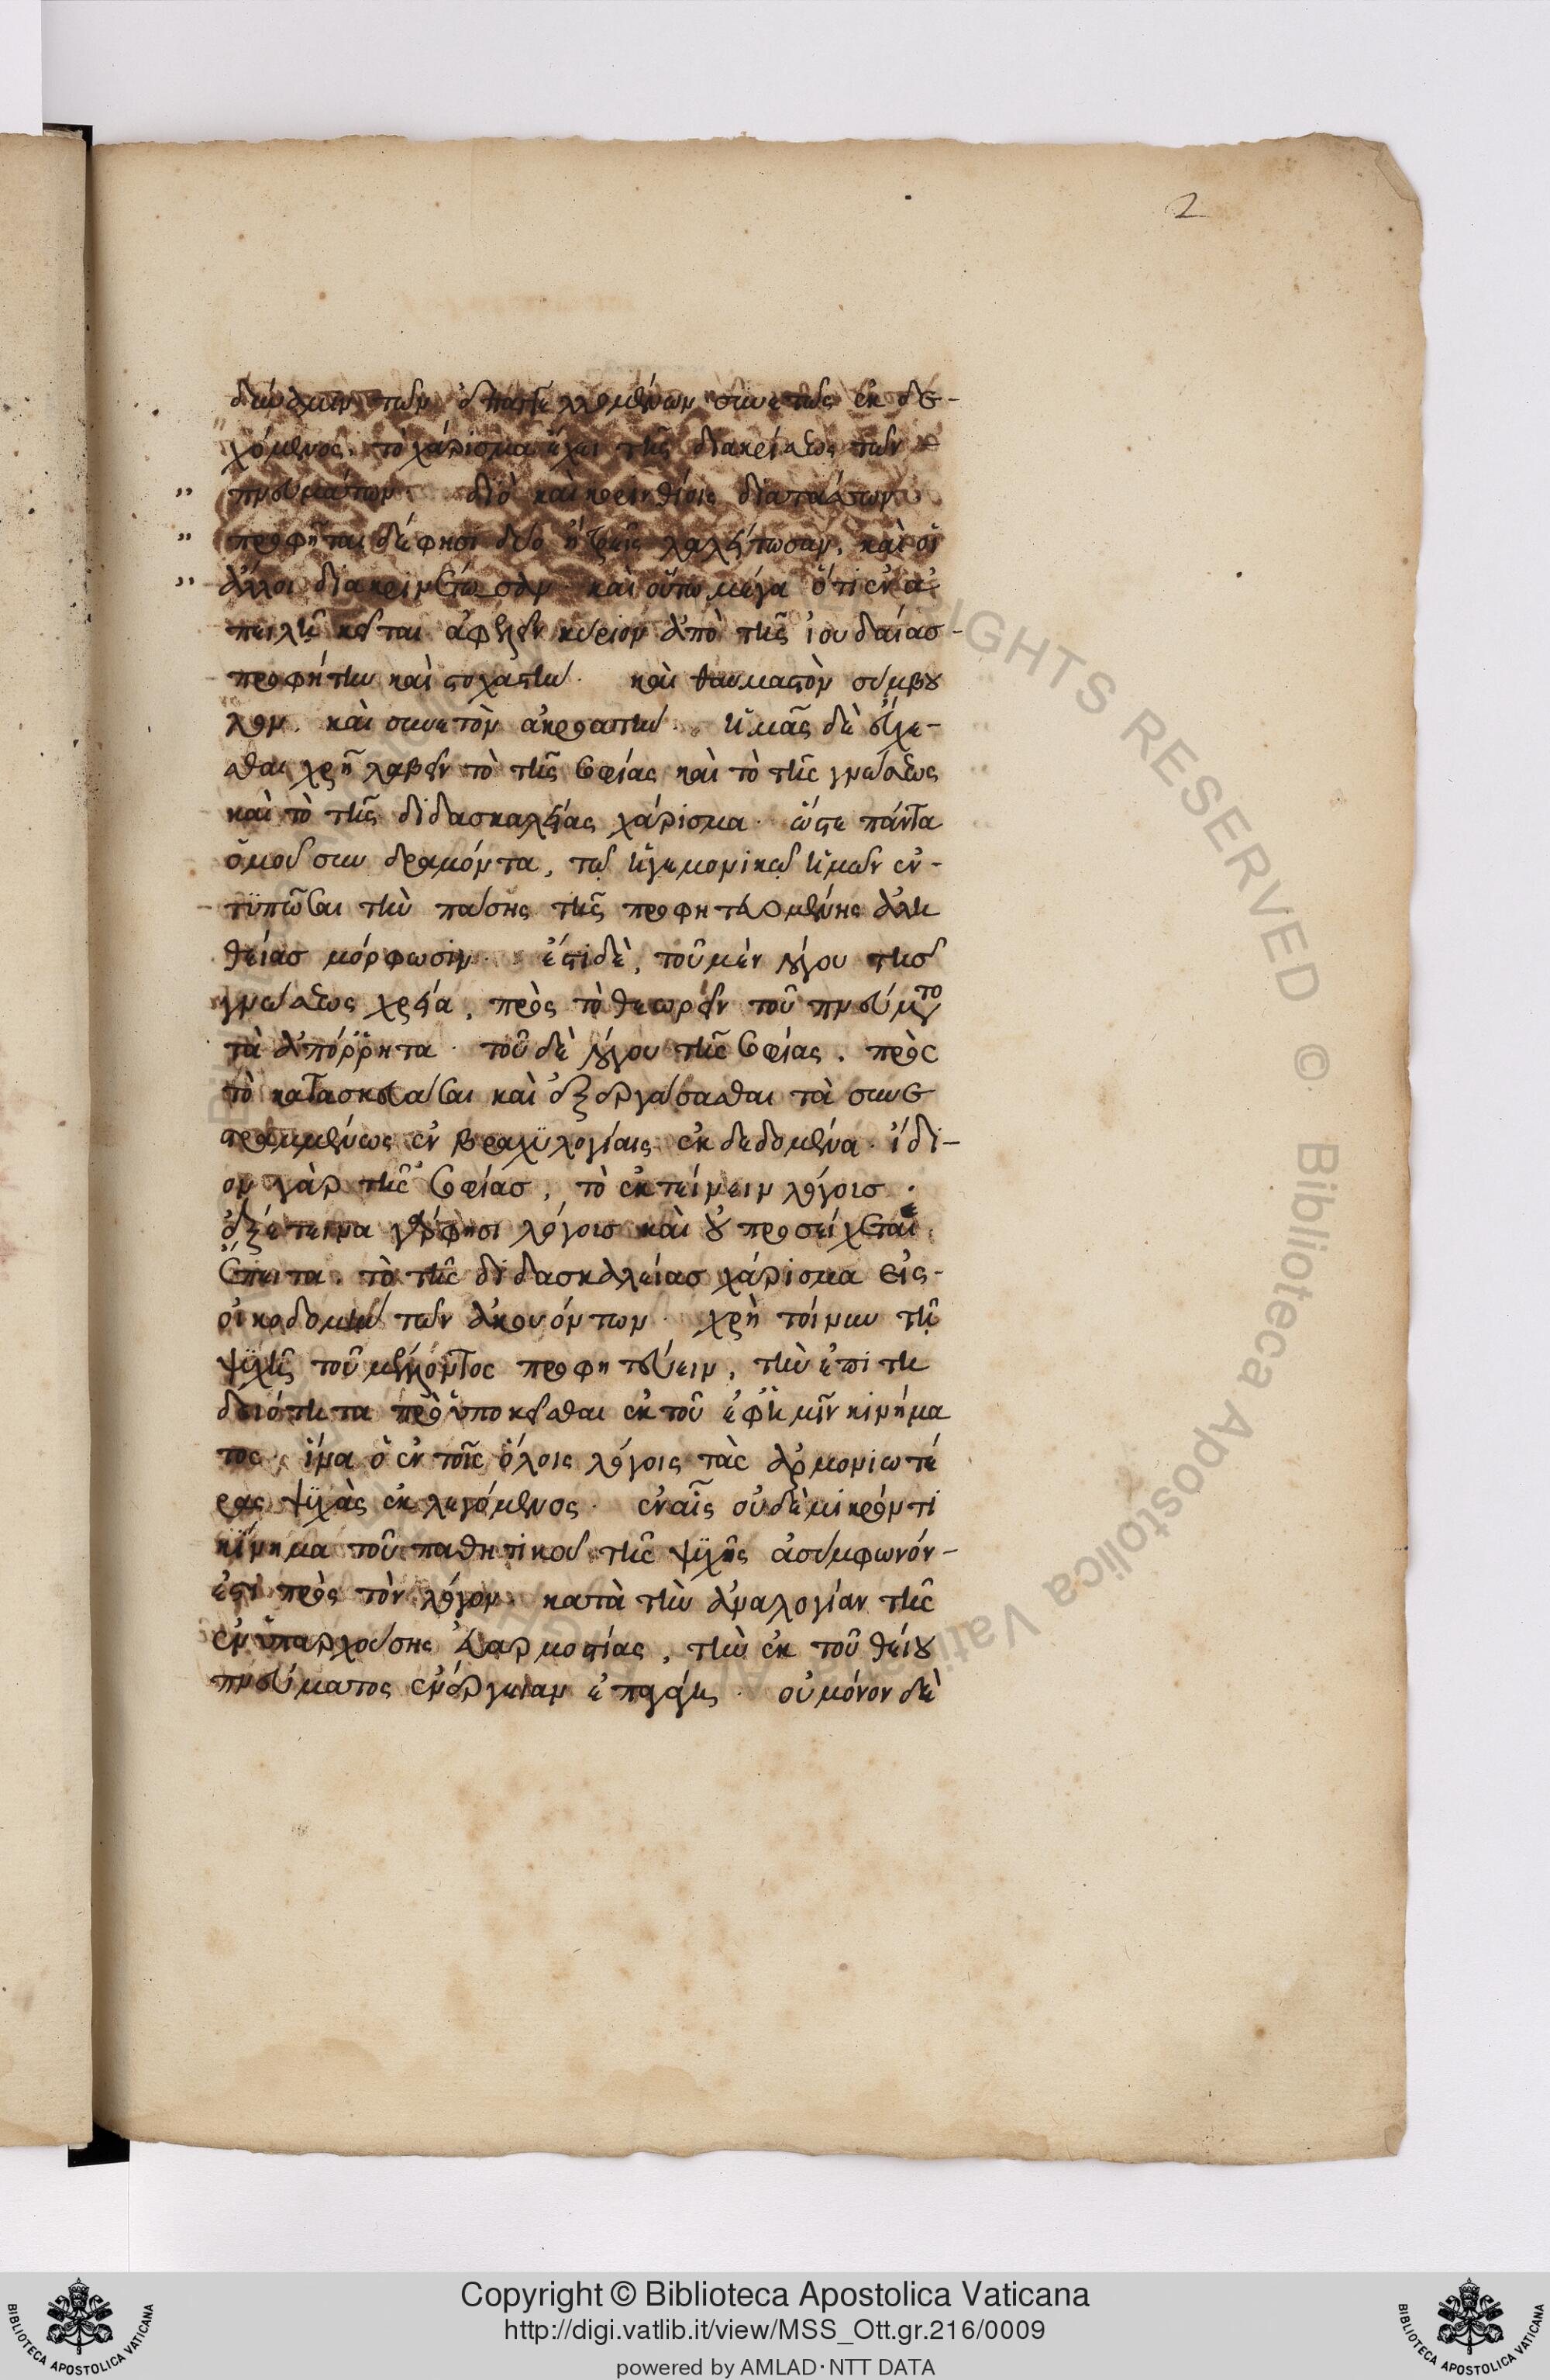 2
δύναμιν τῶν ἐπαγγελλομένων συνετῶς ἐκδε-
χόμενος, τὸ χάρισμα ἔχει τῆς διακρίσεως τῶν
πνευμάτων. διὸ καὶ κορινθίοις διατάττων
προφῆται δέ φησι δύο ἢ τρεῖς λαλείτωσαν, καὶ οἱ
ἄλλοι διακρινέτωσαν. καὶ οὕτω μέγα ὅτι ἐν ἀ
πειλῇ κεῖται ἀφελεῖν κύριον ἀπὸ τῆς ἰουδαίας-
προφήτην καὶ στοχαστήν. καὶ θαυμαστὸν σύμβου
λον. καὶ συνετὸν ἀκροατήν. ἡμᾶς δὲ εὔχε-
σθαι χρὴ λαβεῖν τὸ τῆς σοφίας καὶ τὸ τῆς γνώσεως
καὶ τὸ τῆς διδασκαλείας χάρισμα. ὥστε πάντα
ὁμοῦ συνδραμόντα, τῷ ἡγεμονικῷ ἡμῶν ἐν-
τϋπῶσαι τὴν πάσης τῆς προφητευομένης ἀλη
θείας μόρφωσιν. ἔστι δὲ, τοῦ μὲν λόγου τῆς
γνώσεως χρεία, πρὸς τὸ θεωρεῖν τοῦ πνεύματο
τὰ ἀπόρρητα. τοῦ δὲ λόγου τῆς σοφίας, πρὸς
τὸ κατασκευάσαι καὶ ἐξεργάσασθαι τὰ συνε
στραμμένως ἐν βραχϋλογίαις ἐκδεδομένα. ἴδι-
ον γὰρ τῆς σοφίας, τὸ ἐκτείνειν λόγοις.
ἐξέτεινα γάρ φησι λόγοις καὶ οὐ προσείχεται.
ἔπειτα, τὸ τῆς διδασκαλείας χάρισμα εἰς-
οἰκοδομὴν τῶν ἀκουόντων. χρὴ τοίνυν τῇ
ψϋχῇ τοῦ μέλλοντος προφητεύειν, τὴν ἐπιτη
δειότητα προϋποκεῖσθαι ἐκ τοῦ ἐφ ἡμῖν κινήμα
τος, ἵνα ὁ ἐν τοῖς ὅλοις λόγοις τὰς ἁρμονιωτέ
ρας ψϋχὰς ἐκλεγόμενος. ἐν αἷς οὐδὲ μικρόν τι
κίνημα τοῦ παθητικοῦ τῆς ψϋχῆς ἀσύμφωνόν-
ἐστι πρὸς τὸν λόγον. κατὰ τὴν ἀναλογίαν τῆς
ἐνϋπαρχούσης εὐαρμοστίας, τὴν ἐκ τοῦ θείου
πνεύματος ἐνέργειαν ἐπαγάγῃς. οὐ μόνον δὲ
Copyright © Biblioteca Apostolica Vaticana
http://digi.vatlib.it/view/MSS_Ott.gr.216/0009
powered by AMLAD·NTT DATA
BIBLIOTECA APOSTOLICA VATICANA
BIBLIOTECA APOSTOLICA VATICANA